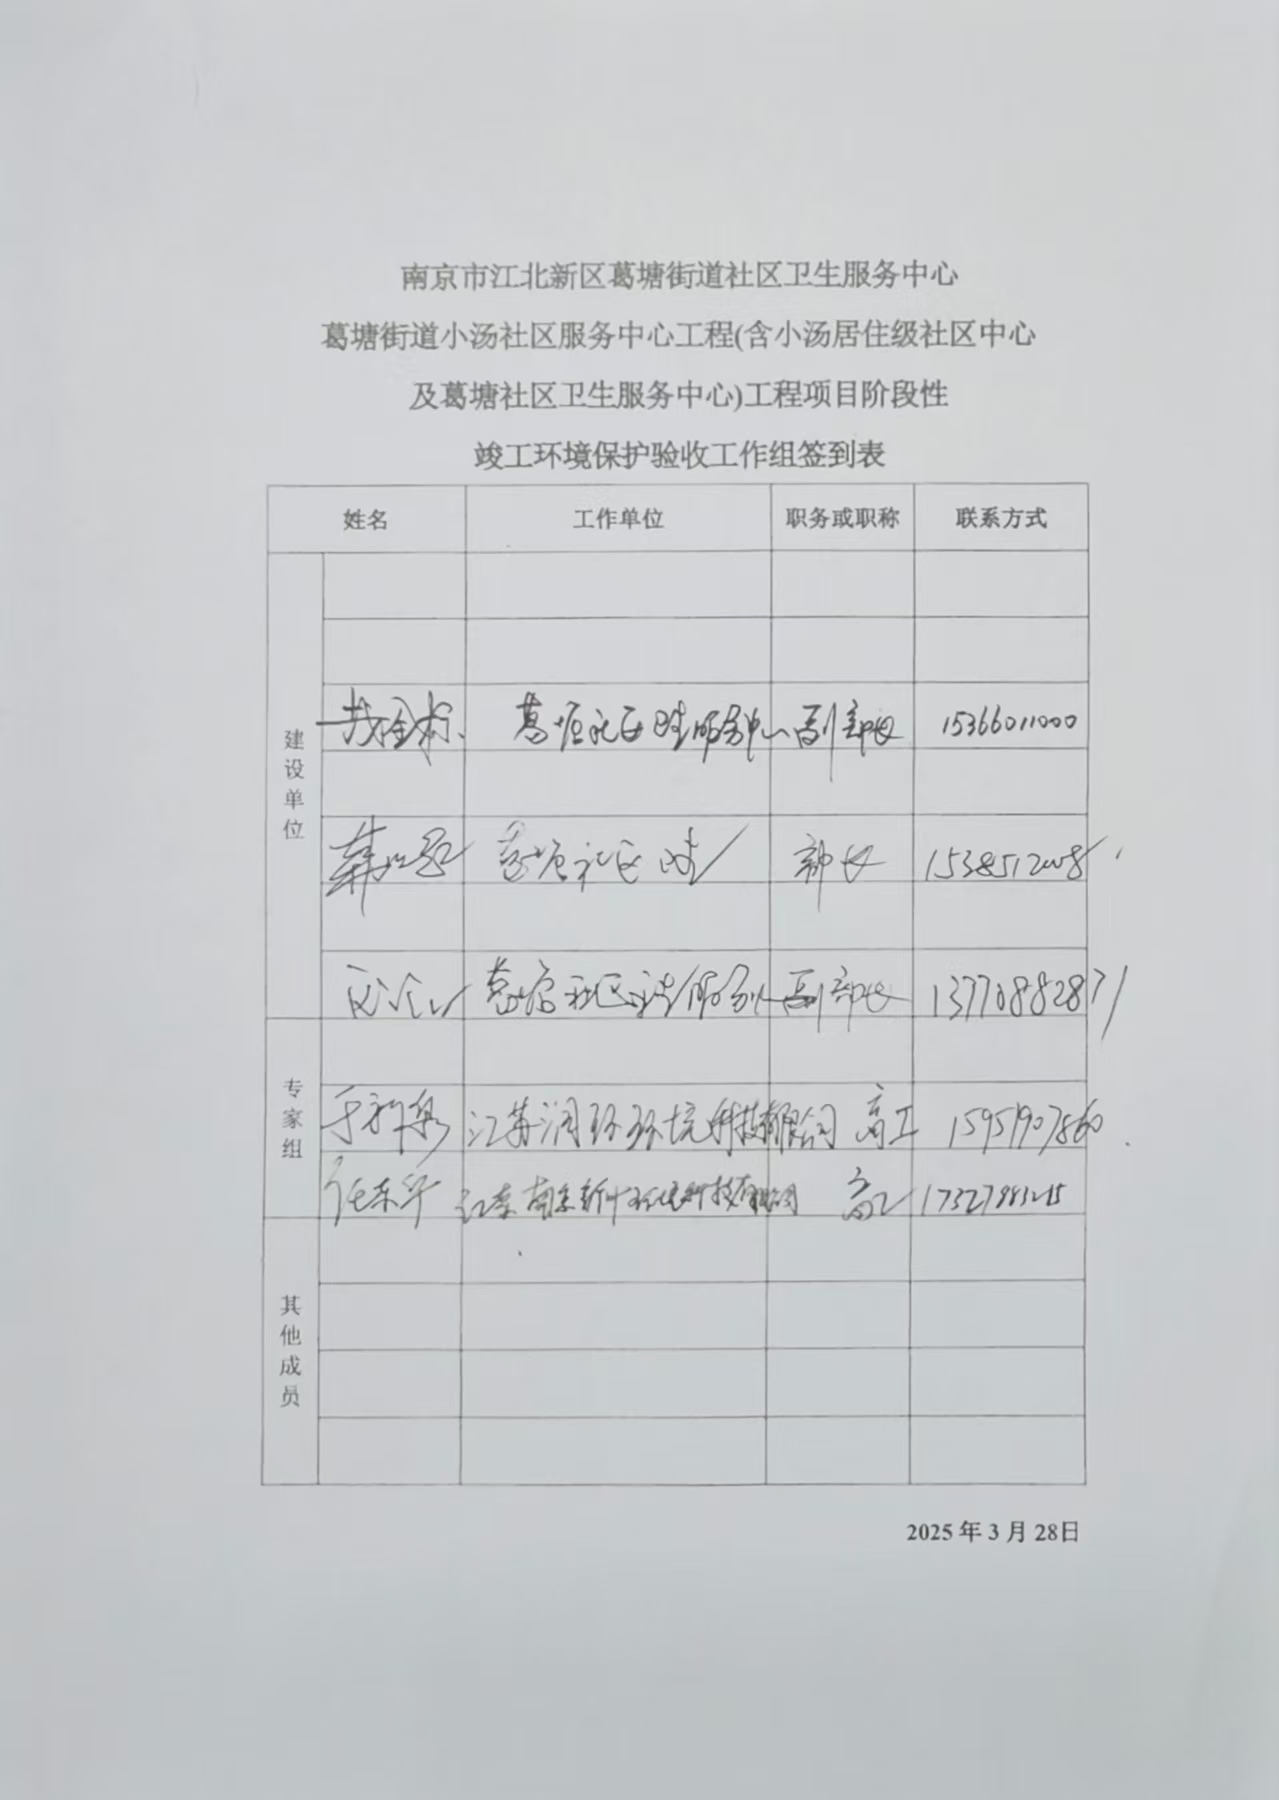 南京市江北新区葛塘街道社区卫生服务中心
葛塘街道小汤社区服务中心工程(含小汤居住级社区中心
及葛塘社区卫生服务中心)工程项目阶段性
竣工环境保护验收工作组签到表
姓名 工作单位 职务或职称 联系方式
建设单位
葛塘社区卫生服务中心 副部长 15366011000
葛塘社区 部长
葛塘社区 服务 副部长 13770882871
专家组
江苏润环环境科技有限公司 高工
任东华 高工
其他成员
2025年3月28日